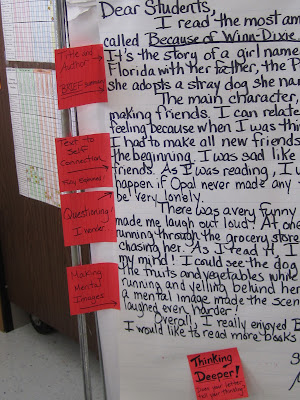 Dear Students,
I read the most am
called Because of Winn-Dixie.
It's the story of a girl name
Florida with her father, the P
she adopts a stray dog she na
The main character,
making friends. I can relate
feeling because when I was thi
I had to make all new friends
the beginning. I was sad like
friends. As I was reading, I w
happen if Opal never made any
be very lonely.
There was a very funny
made me laugh out loud! At one
running through the grocery store
chasing her. As I read it, I
my mind! I could see the dog
the fruits and vegetables while
running and yelling behind her
a mental image made the scen
laughed even harder!
Overall, I really enjoyed B
I would like to read more books
Title and
Author
BRIEF summary
Text to
Self
Connection
Questioning
I wonder
Making
Mental
Images
Thinking
Deeper!
Does your letter
tell your thinking?